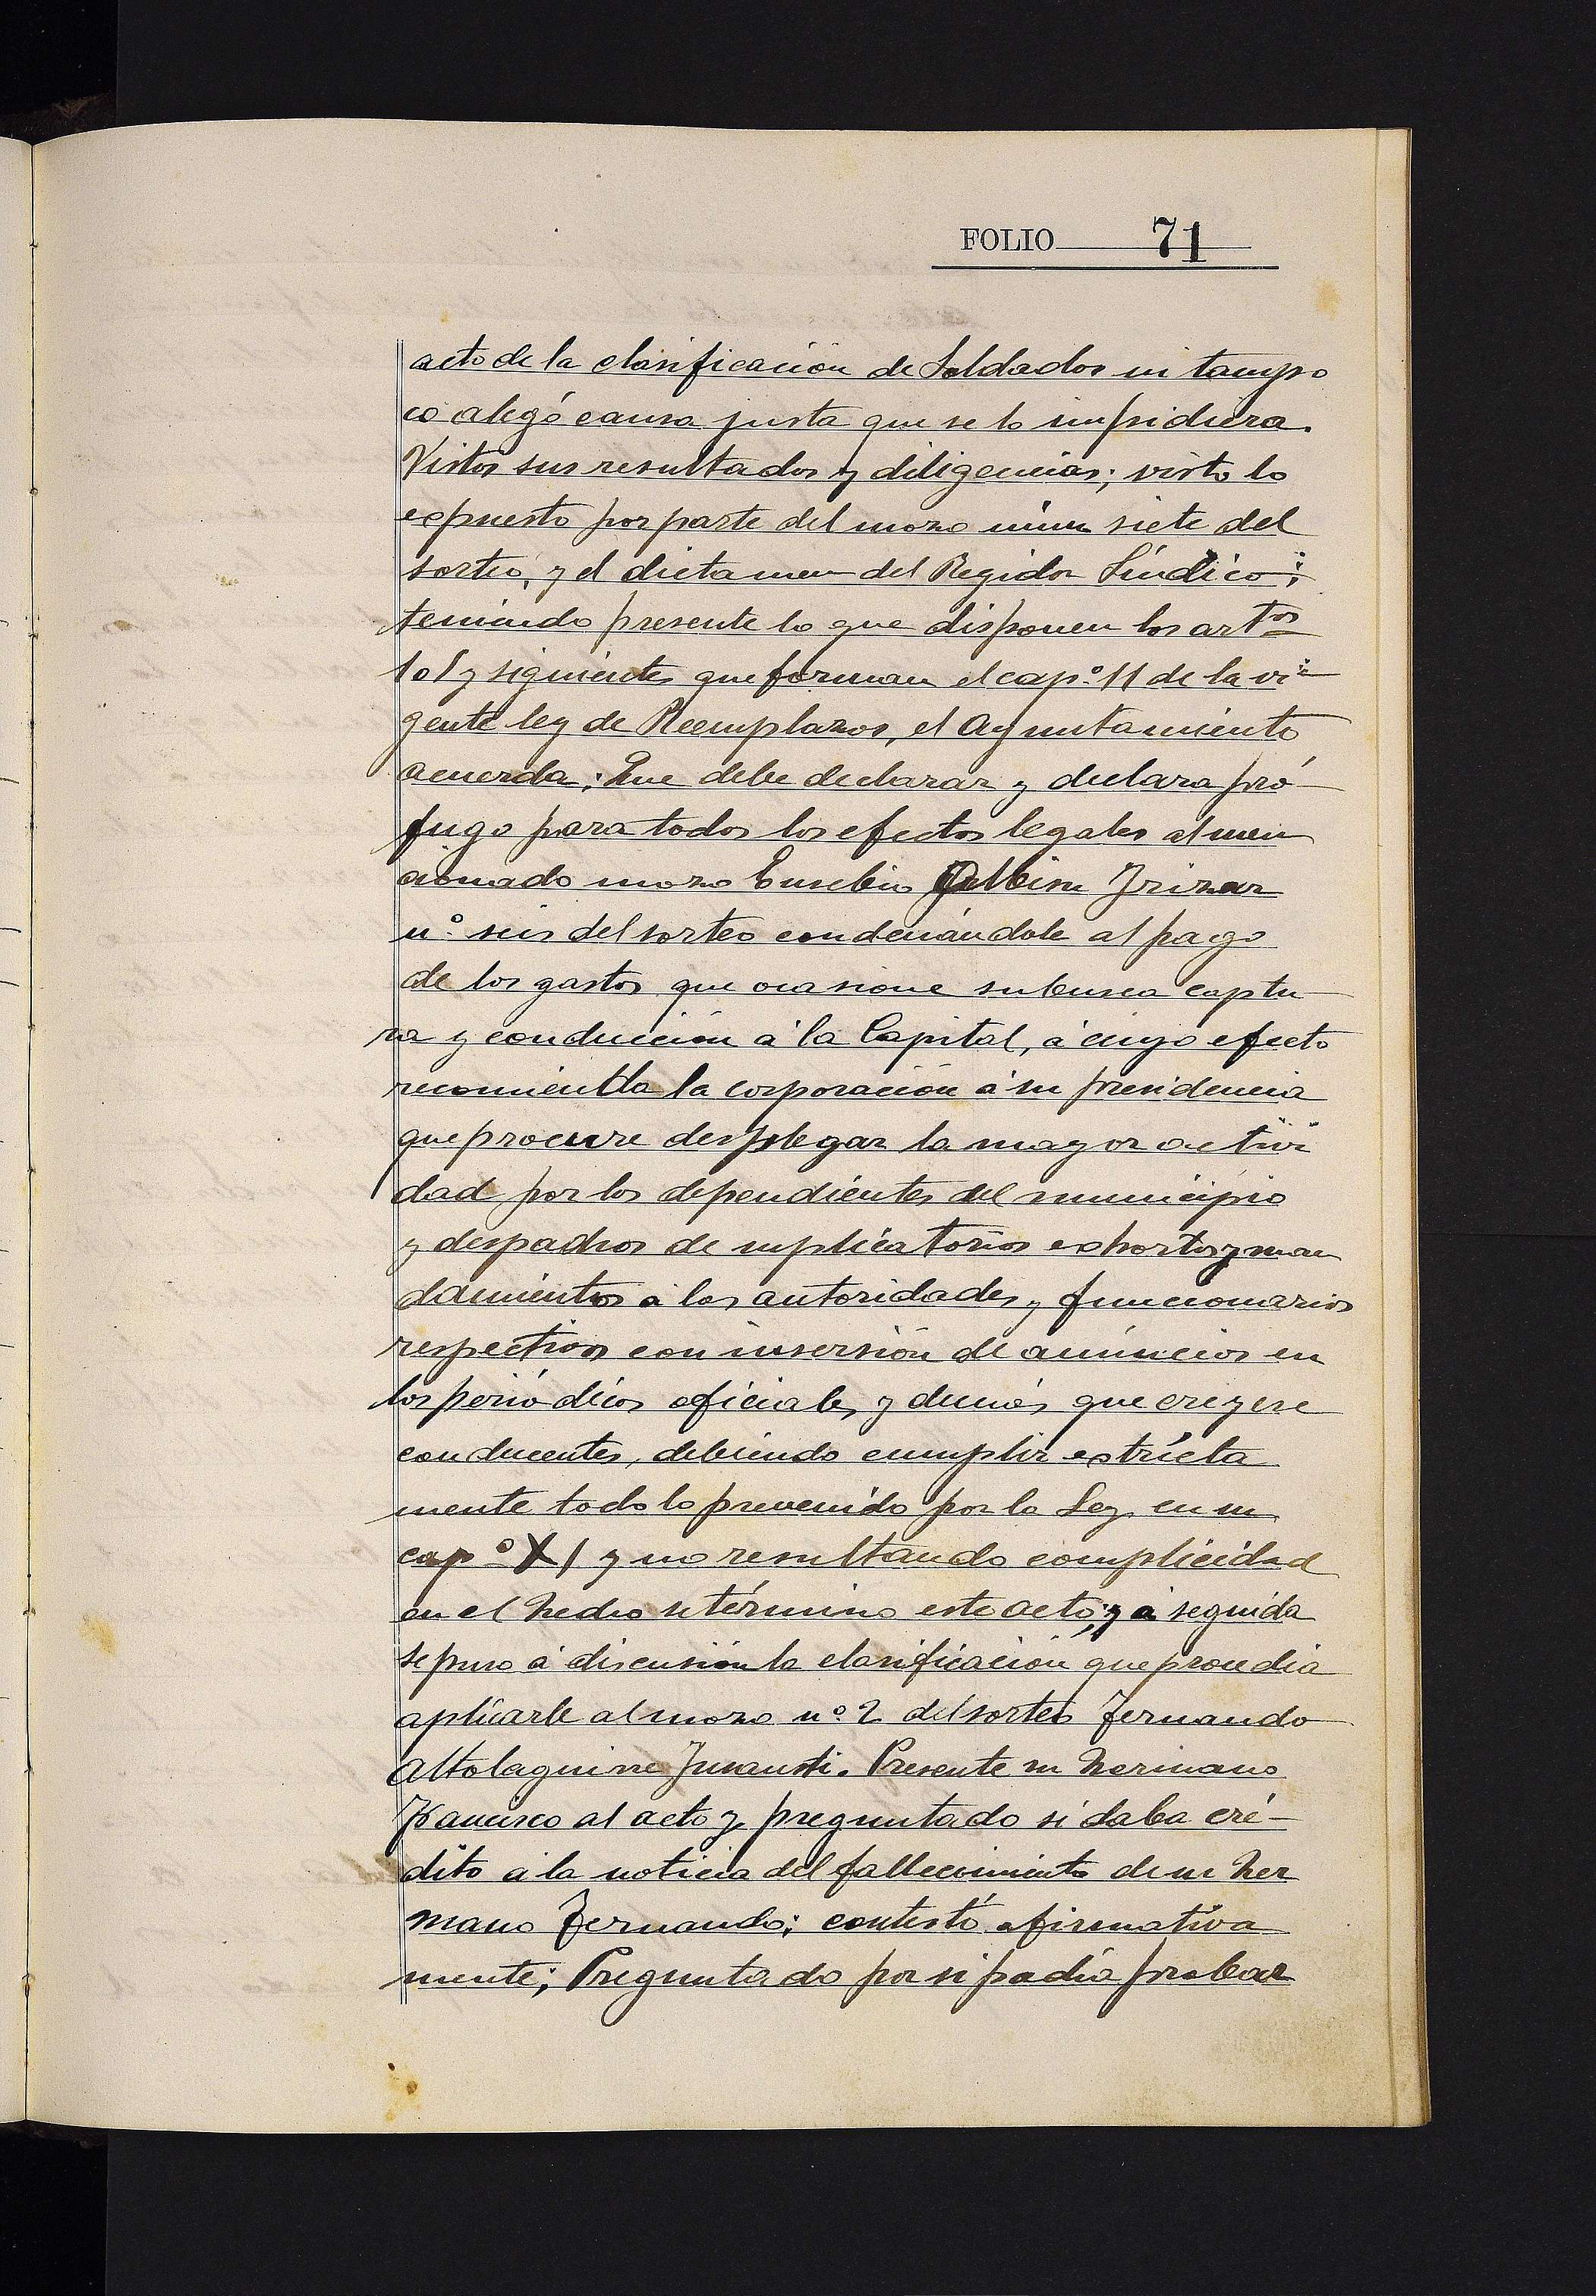 FOLIO 71
acto de la clasificación de Soldados ni tampo
co alegó causa justa que se lo impidiera.
Vistos sus resultados y diligencias; visto lo
expuesto por parte del mozo núm siete del
sorteo, y el dictamen del Regidor Síndico;
teniendo presente lo que disponen los artos
101 y siguientes que forman el cap.º 11 de la vi-
gente ley de Reemplazos, el Ayuntamiento
acuerda: Que debe declarar y declara pró-
fugo para todos los efectos legales al men
cionado mozo Eusebio Irizar
nº seis del sorteo condenándole al pago
de los gastos que ocasione su busca captu
ra y conducción á la Capital, á cuyo efecto
recomienda la corporación á su presidencia
que procure desplegar la mayor activi
dad por los dependientes del municipio
y despachos de suplicatorios exhortos y man
damientos á las autoridades y funcionarios
respectivos con inserción de anúncios en
los periódicos oficiales y demás que creyere
conducentes, debiendo cumplir estricta
mente todo lo prevenido por la Ley en su
capº XI y no resultando complicidad
en el hecho se términó este acto; y á seguida
se puso á discusión la clasificación que procedía
aplicarle al mozo nº 2 del sorteo Fernando
Altolaguirre Junausti. Presente su hermano
Francisco al acto y preguntado si daba cré-
dito á la noticia del fallecimiento de su her
mano Fernando; contestó afirmativa
mente; Preguntado por si podía probar